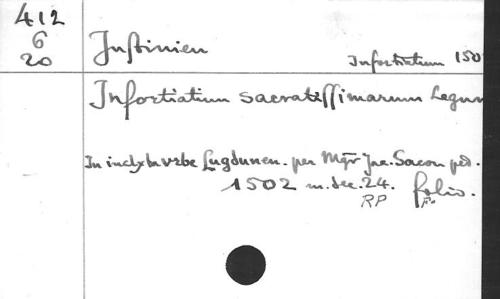 412
6
20
Justinien
Infortiatum 150
Infortiatium sacratissimarum Legum
In inclyta urbe Lugdunen. per Mgr̄ Jac. Sacon
1502 m. dec. 24. folio.
RP